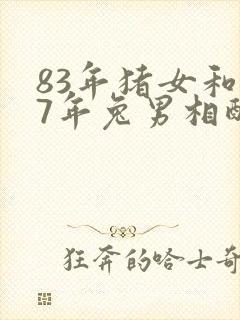 83年猪女和
7年兔男相配
狂奔的哈士奇